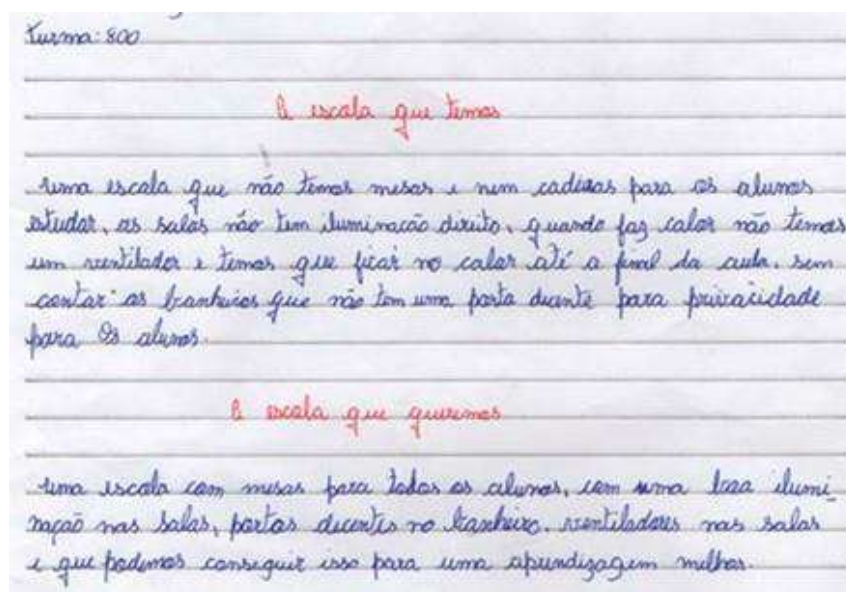 turma: 800
A escola que temos
uma escola que não temos mesas e nem cadeiras para os alunos
estudar, as salas não tem iluminação direito, quando faz calor não temos
um ventilador e temos que ficar no calor até o final da aula. sem
contar os banheiros que não tem uma porta decente para privacidade
para Os alunos.
A escola que queremos
uma escola com mesas para todos os alunos, com uma boa ilumi_
nação nas salas, portas decentes no banheiro, ventiladores nas salas
e que podemos conseguir isso para uma aprendizagem melhor.